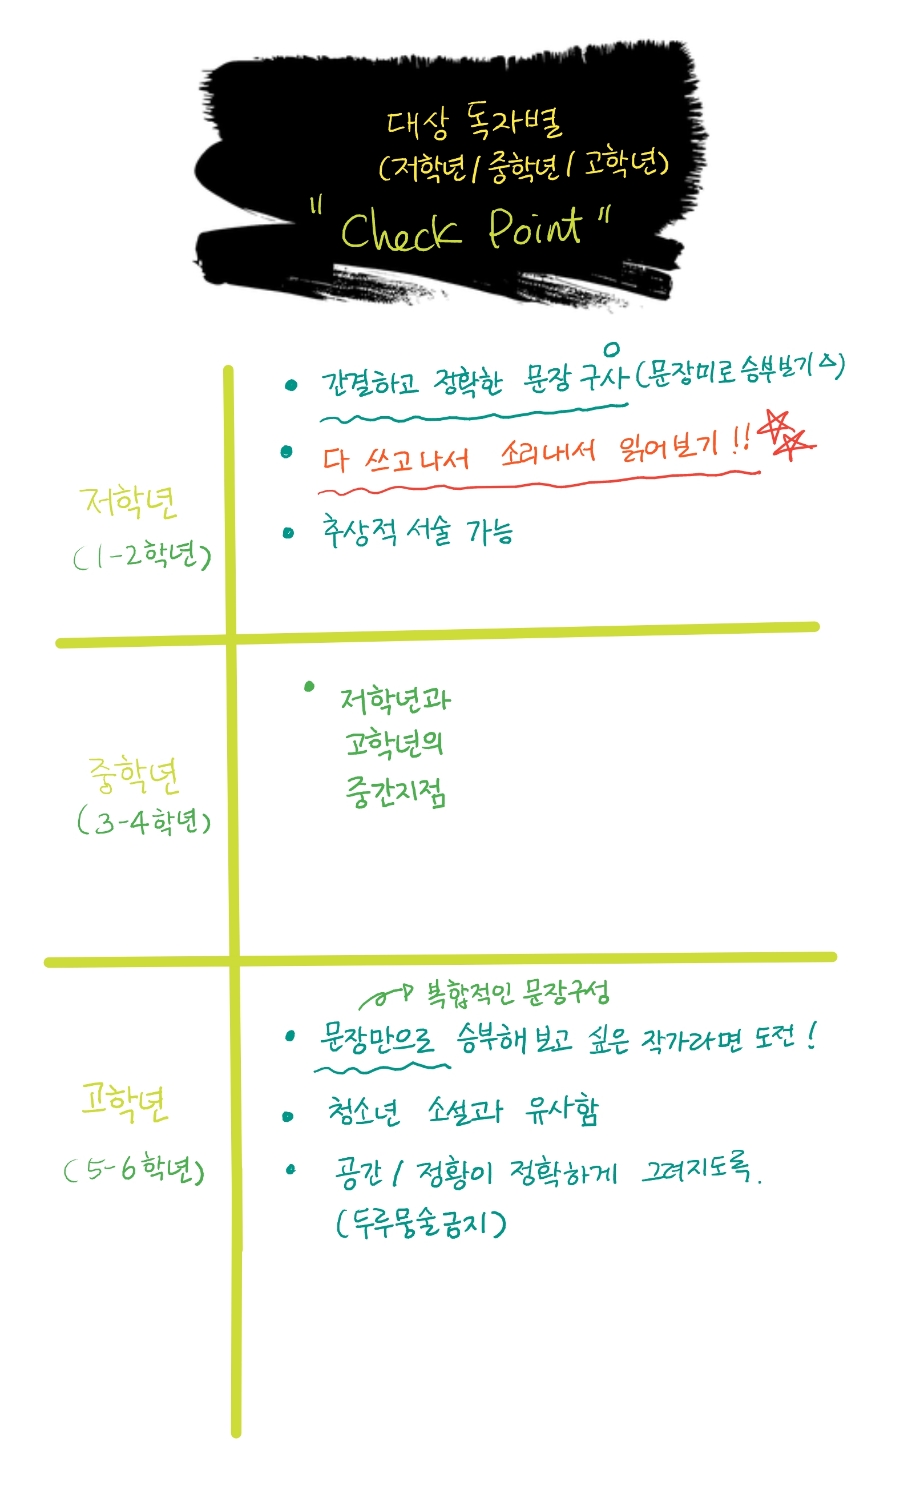 대상 독자별
(저학년/중학년/고학년)
"Check Point"
저학년
(1-2학년)
• 간결하고 정확한 문장 구사 (문장미로 승부보기 △)
• 다 쓰고나서 소리내서 읽어보기!!
• 추상적 서술 가능
중학년
(3-4학년)
• 저학년과
고학년의
중간지점
고학년
(5-6학년)
복합적인 문장구성
• 문장만으로 승부해보고 싶은 작가라면 도전!
• 청소년 소설과 유사함
• 공간/정황이 정확하게 그려지도록.
(두루뭉술금지)